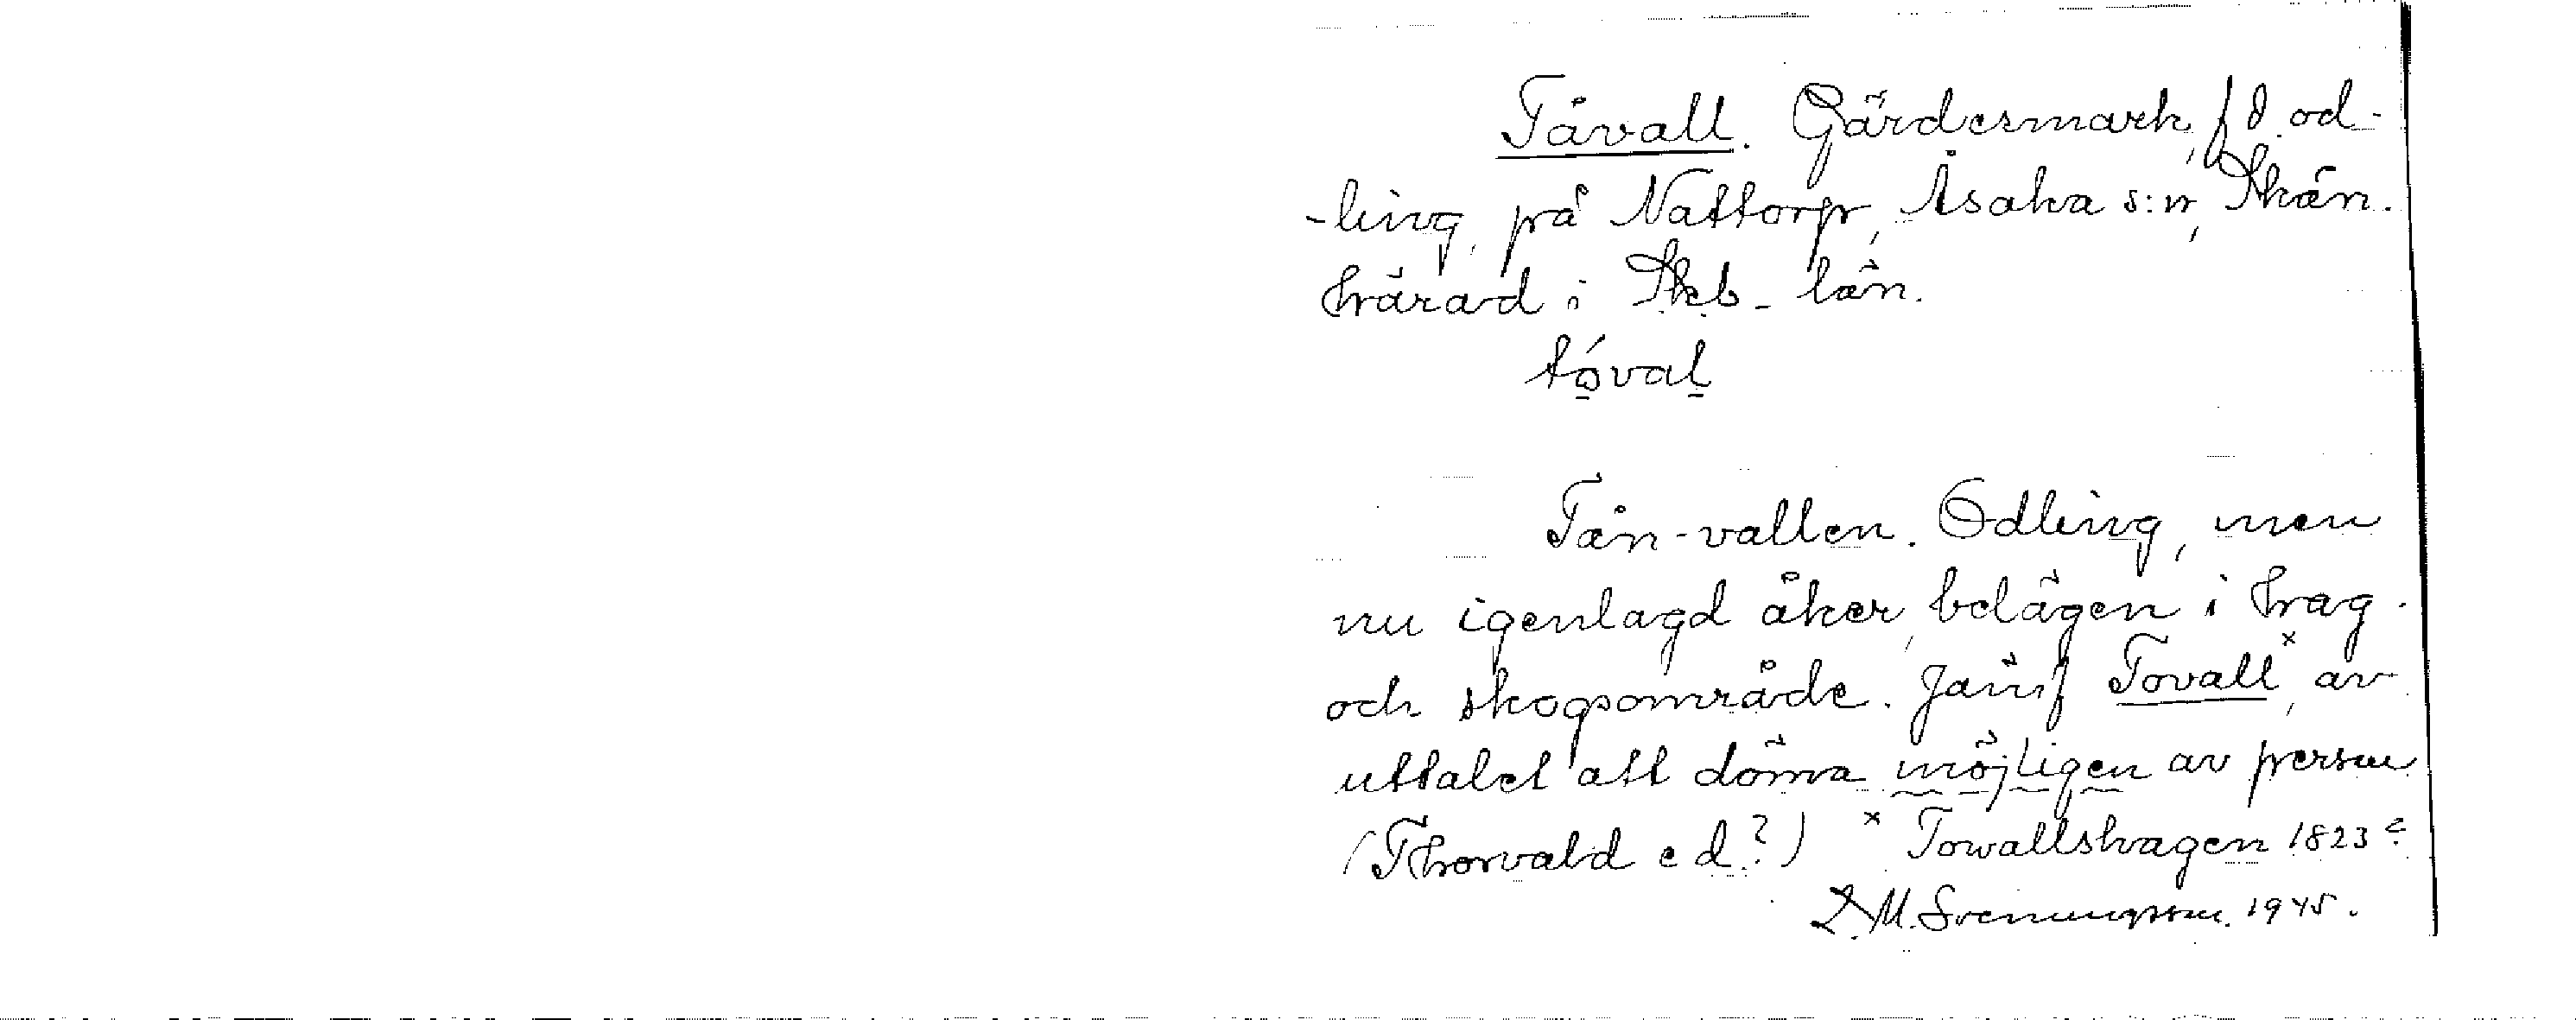 Tåvall. Gärdesmark, f d od-
-ling, på Nattorp, Åsaka s:n, Skån.
härad i Skb- län.
tóval
Tån-vallen. Odling, men
nu igenlagd åker, belägen i hag-
och skogsområde. Jämf Tovall x, av
uttalet att döma möjligen av person
(Thorvald e d?) x Towallshagen 1823
L.M. Svenungsson. 1945.